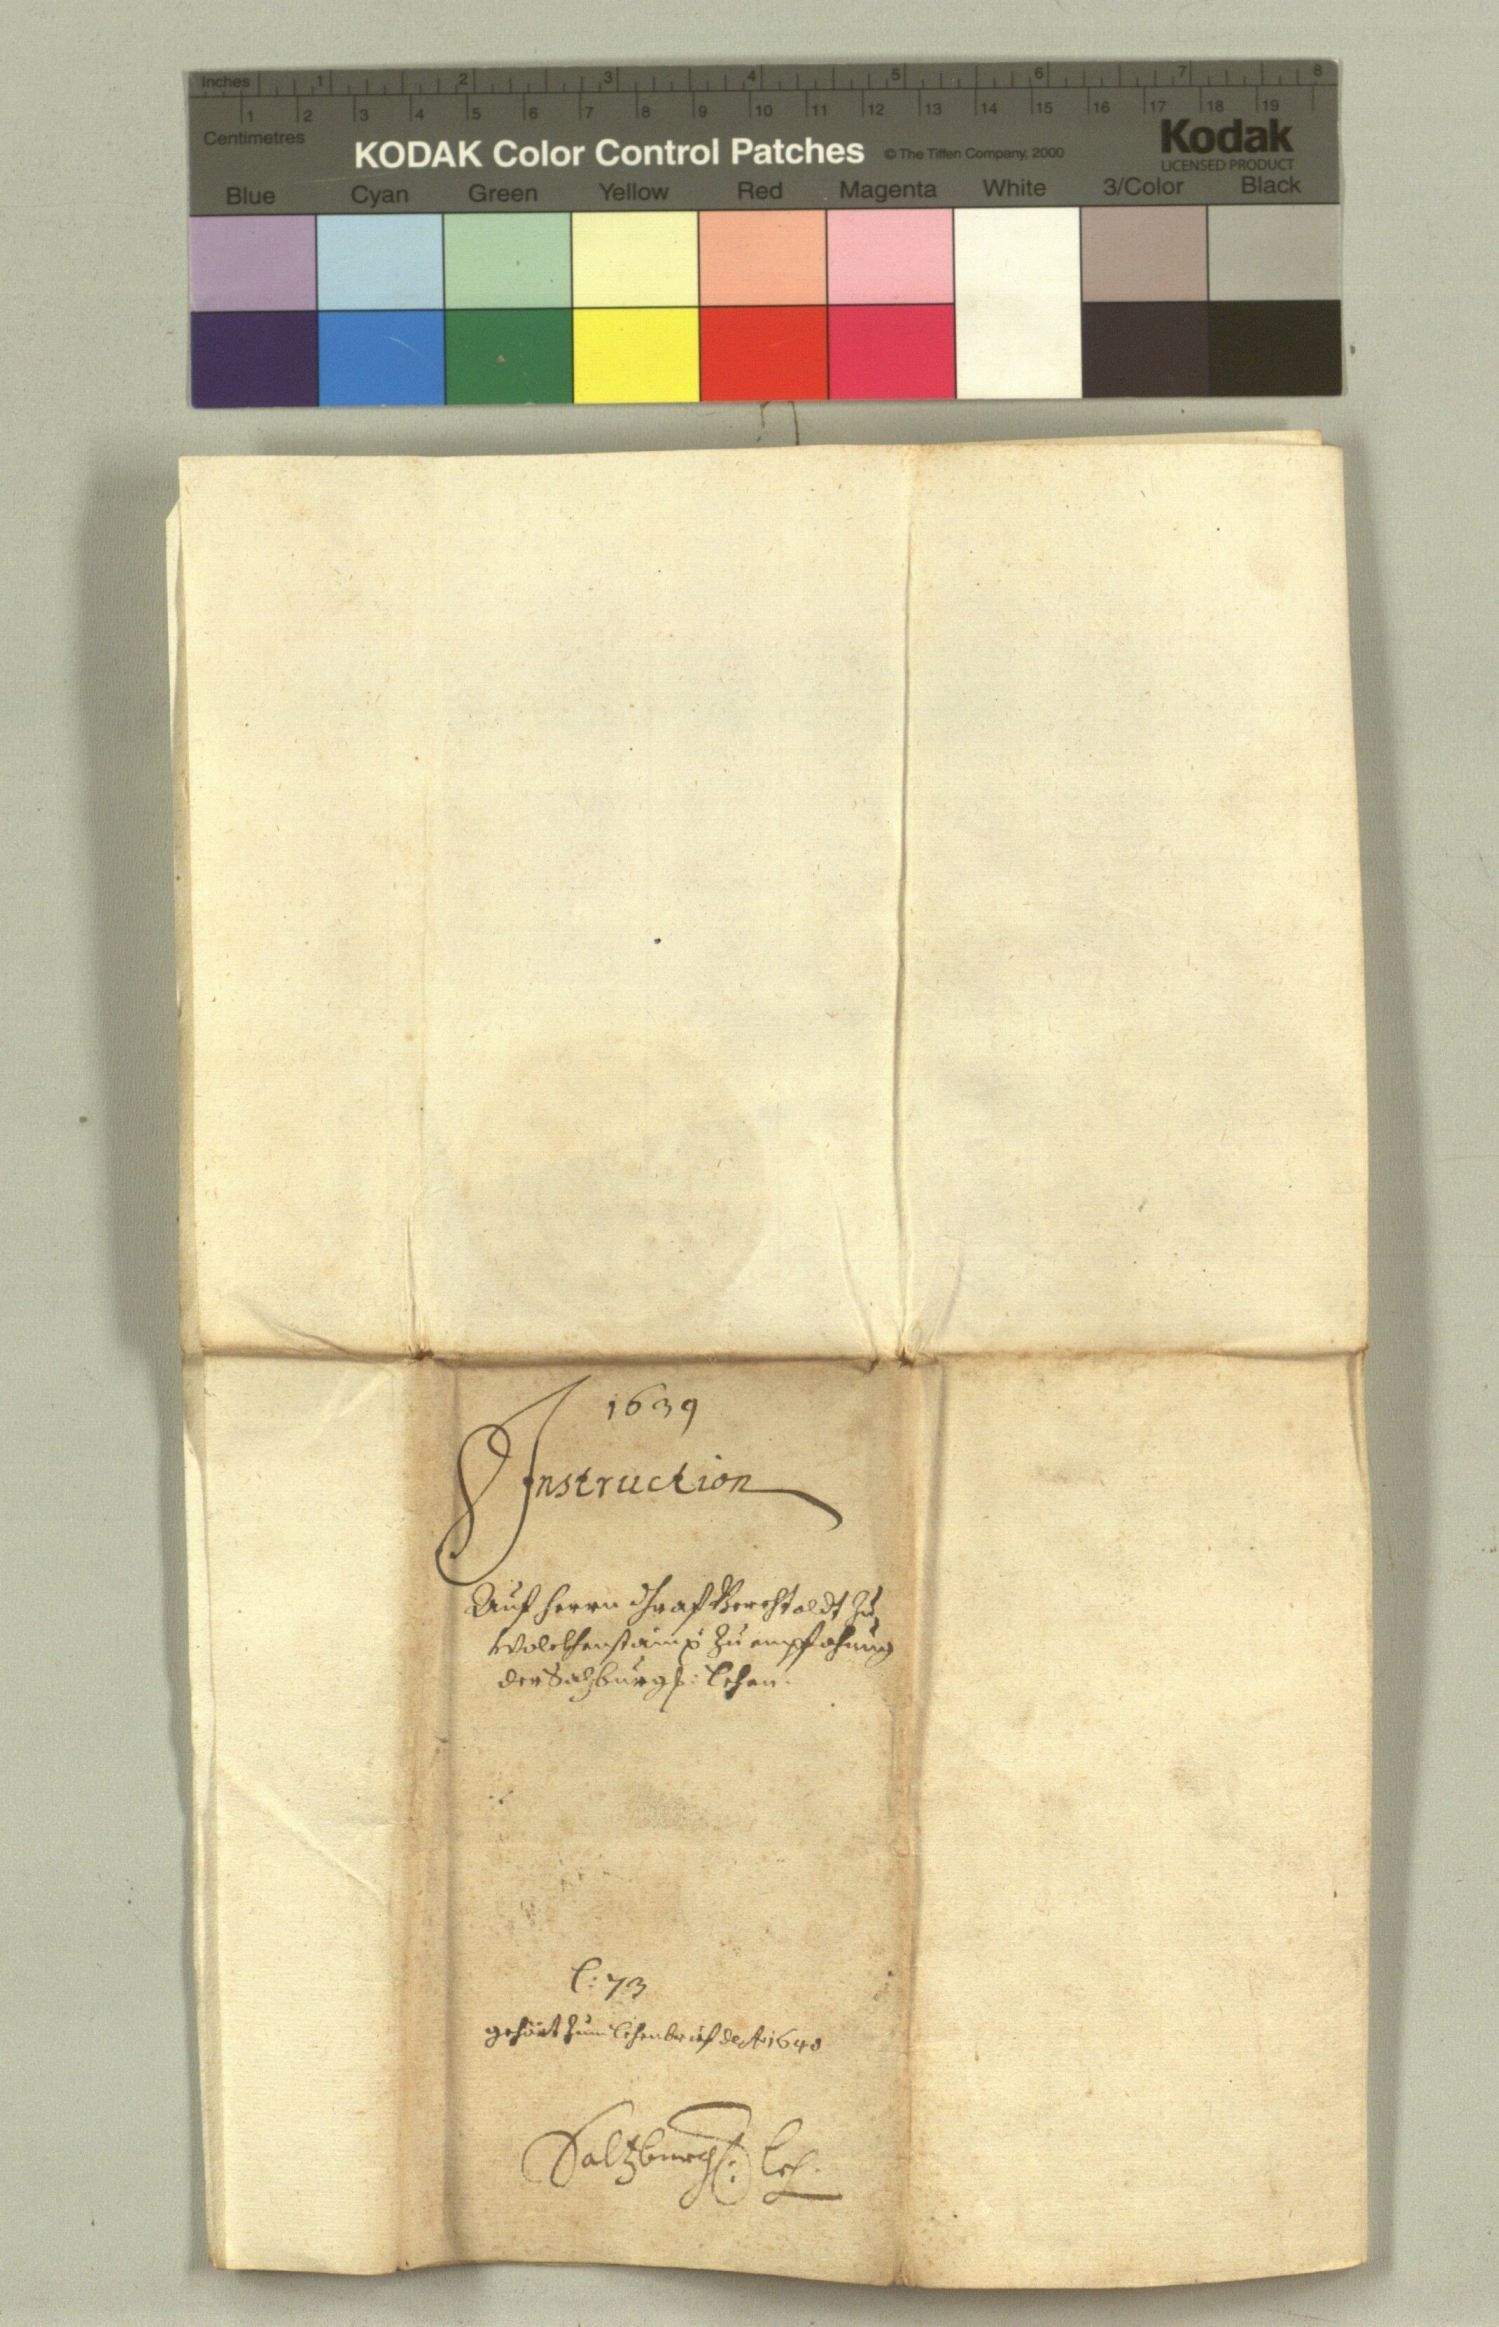 Inches 1 2 3 4 5 6 7 8
1 2 3 4 5 6 7 8 9 10 11 12 13 14 15 16 17 18 19
Centimetres
KODAK Color Control Patches © The Tiffen Company, 2000 Kodak
LICENSED PRODUCT
Blue Cyan Green Yellow Red Magenta White 3/Color Black
1639
Instruction
Auf herrn Graf Berchtoldt zu
Wolckhenstain zu empfahung
der Salzburg: lehen.
C: 73
gehört zum lehenbrief de Ao 1640
Saltzburg: Leh.